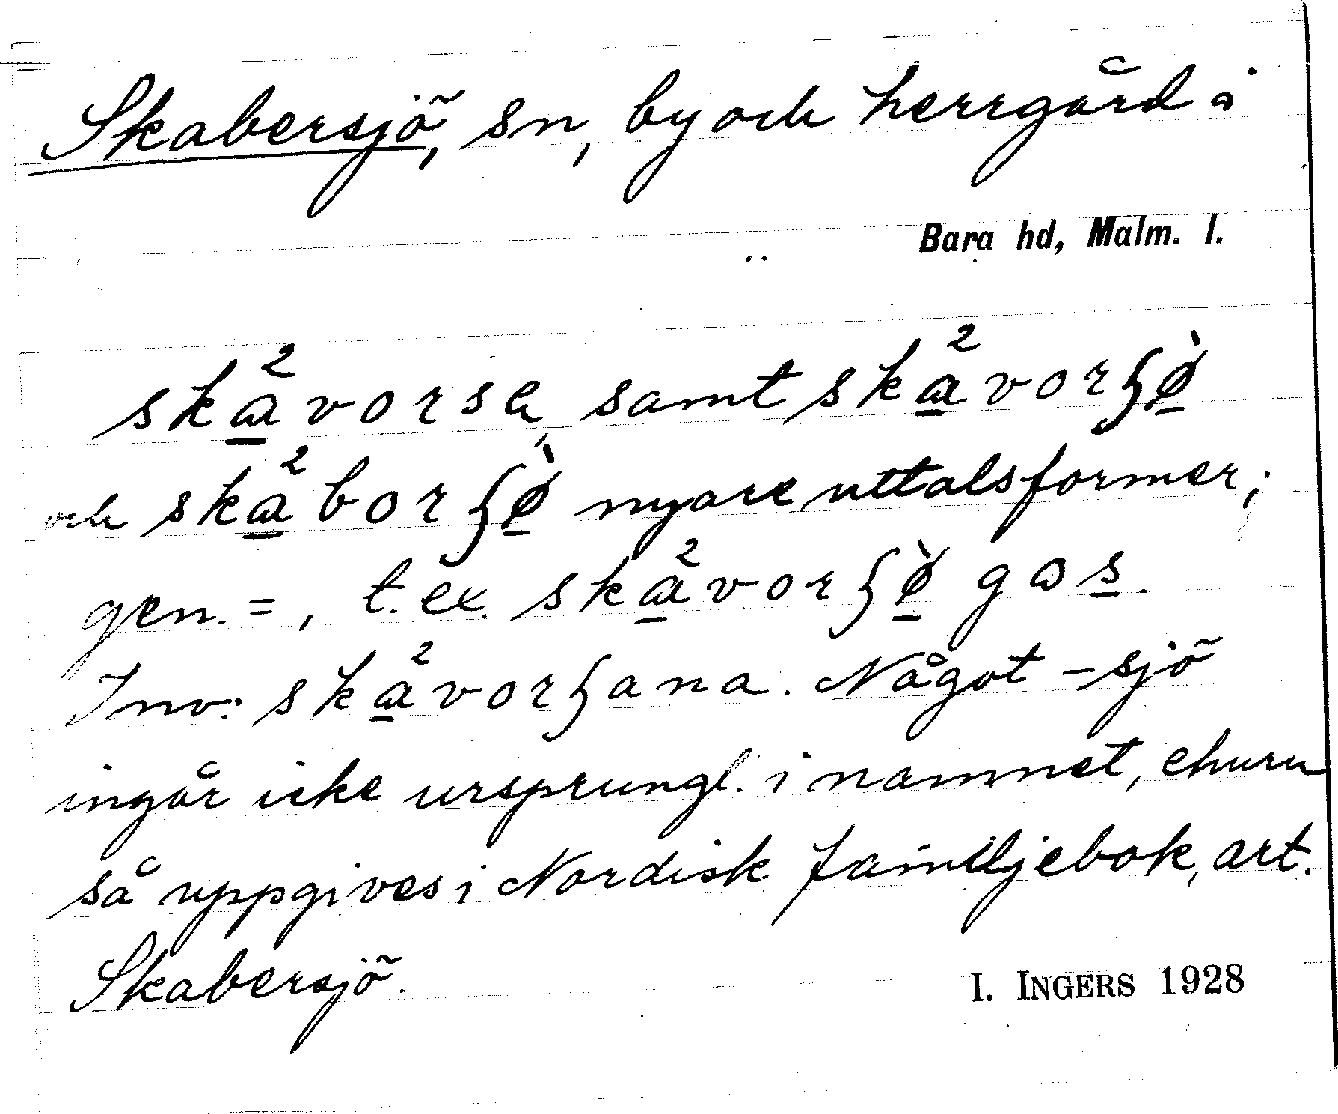 Skabersjö, sn, by och herrgård i
Bara hd, Malm. l.
ska̲²vorsa, samt ska̲²vorʃø̲̀
och ska̲²borʃø̲̀ nyare uttalsformer;
gen. =, t. ex. ska̲²vorʃø̲̀ gɷs̲.
Inv: ska̲²vorʃana. Något -sjö
ingår icke ursprungl. i namnet, ehuru
så uppgives i Nordisk familjebok, art.
Skabersjö.
I. INGERS 1928